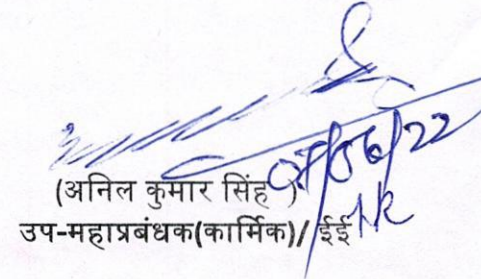 07/06/22
(अनिल कुमार सिंह )
उप-महाप्रबंधक(कार्मिक)/ ईई